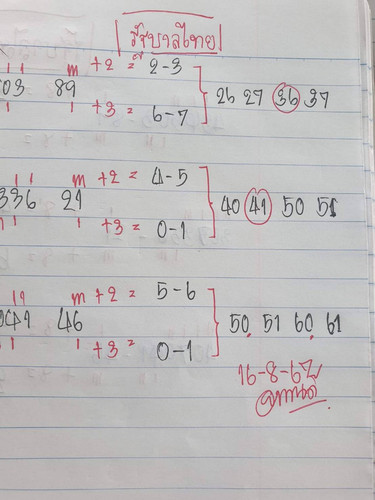 รัฐบาลไทย
03 89 ท +2 = 2-3
+3 = 6-7
26 27 36 37
336 21 ท +2 = 4-5
+3 = 0-1
40 41 50 51
041 46 ท +2 = 5-6
+3 = 0-1
50, 51 60, 61
16-8-67